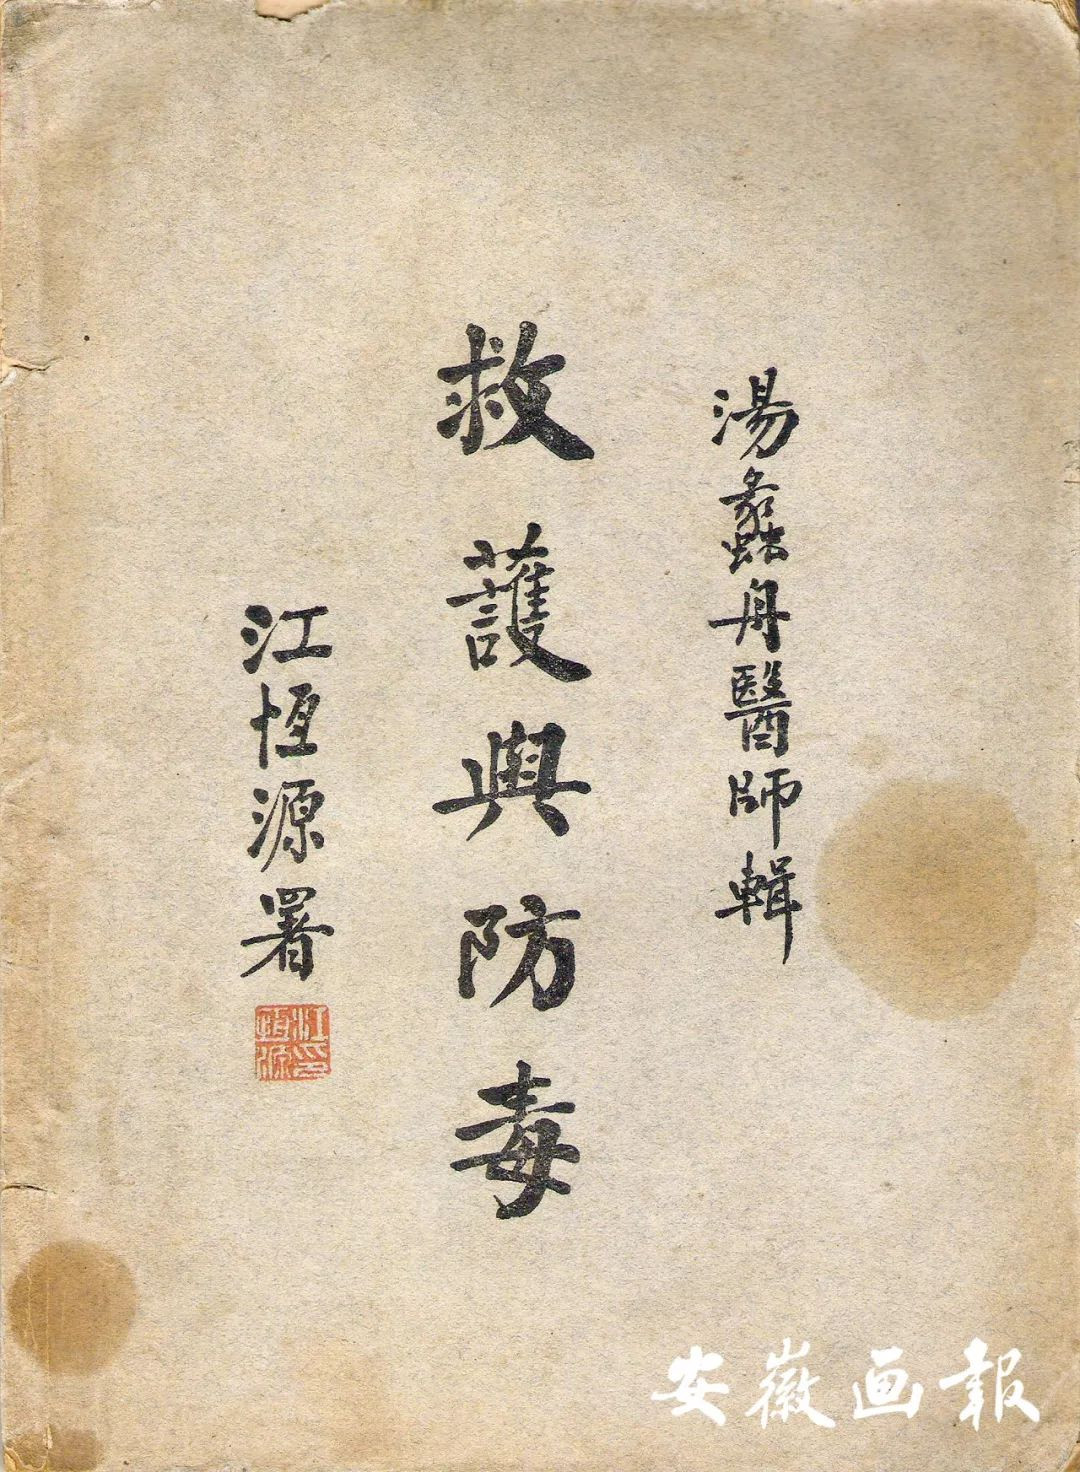 湯蠡舟醫師輯
救護與防毒
江恆源署
江恆源印
安徽画報